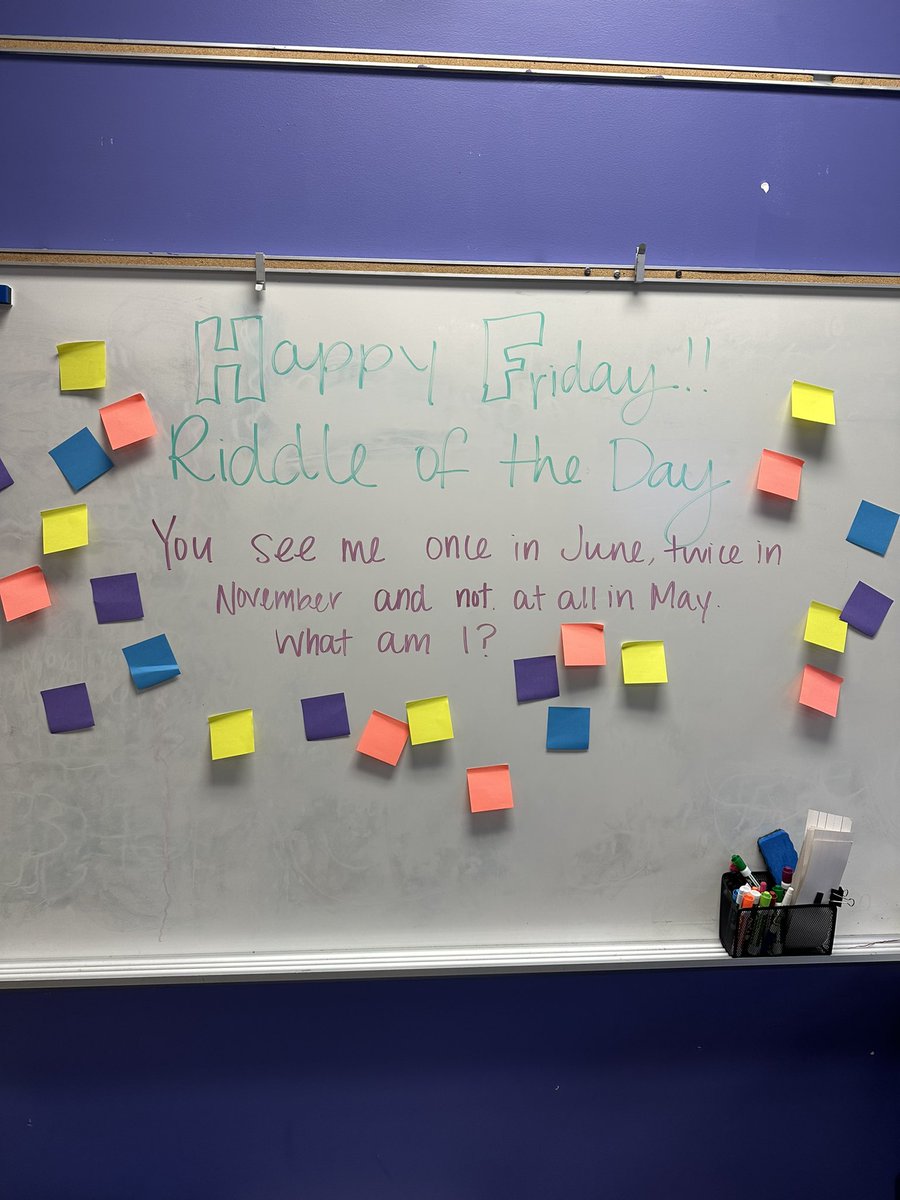 Happy Friday!!
Riddle of the Day
You see me once in June, twice in
November and not at all in May.
What am I?